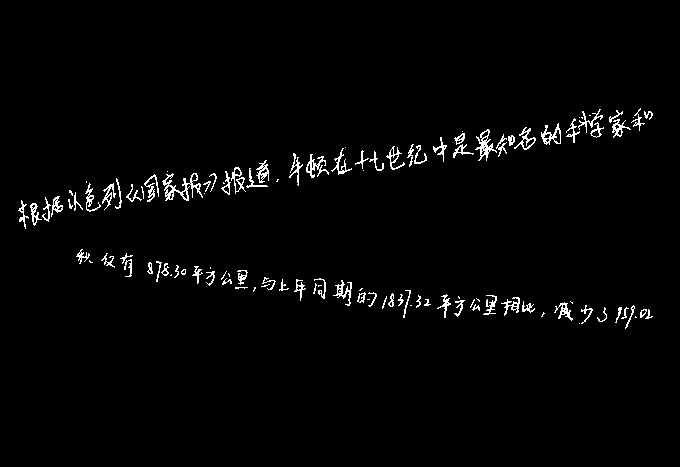 根据以色列《国家报》报道，牛顿在十七世纪中是最知名的科学家和
秋仅有878.30平方公里，与上年同期的1837.32平方公里相比，减少了959.02